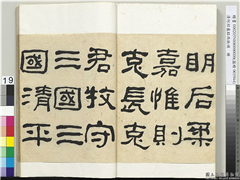 明后柔
嘉惟則
克長克
君牧守
三國三
國清平
19